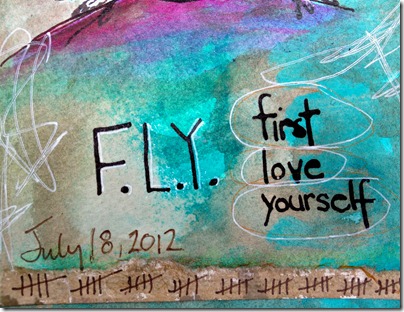 F.L.Y.
first
love
yourself
July 18, 2012